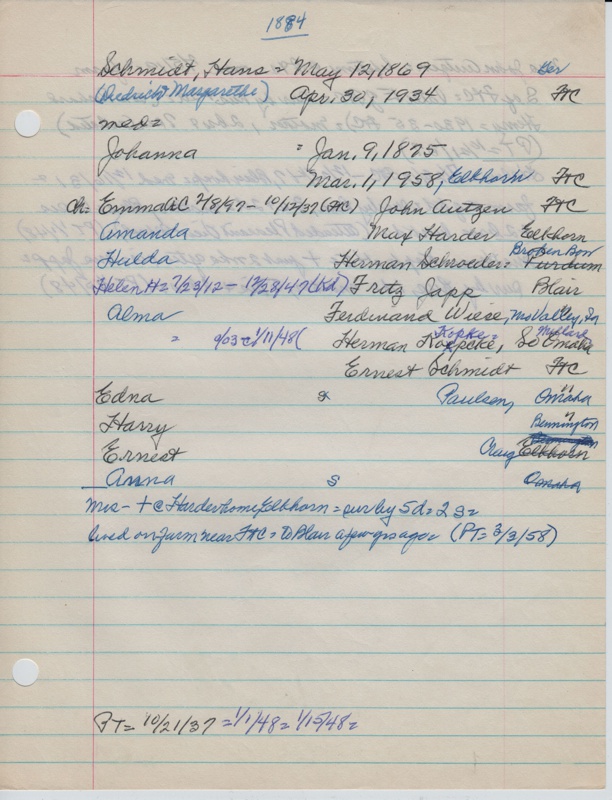 1884
Schmidt, Hans = May 12, 1869 Ger
(Diedrich & Margarethe) Apr. 30, 1934 FtC
med=
Johanna = Jan. 9, 1875
Mar. 1, 1958, Elkhorn FtC
Ch= Emma AC 2/8/97 - 10/12/37 (FtC) John Autzen FtC
Amanda Max Harder Elkhorn
Hulda Herman Schroeder = Broken Bow Purdum
Helen H= 7/23/12 - 12/28/47 (Kd) Fritz Japp Blair
Alma Ferdinand Wiese, Mo Valley, Ia
= 9/03 - 1/11/48 ( Herman Koepcke, Kopke= So Omaha Millard
Ernest Schmidt FtC
Edna Paulsen, Omaha
Harry Bennington
Ernest Craig Elkhorn
Anna S Omaha
Mrs - + c Harder home, Elkhorn = sur by 5d = 2s=
lived on farm near FtC = to Blair a few yrs ago= (PT= 3/3/58)
PT= 10/21/37 = 1/1/48 = 1/15/48=